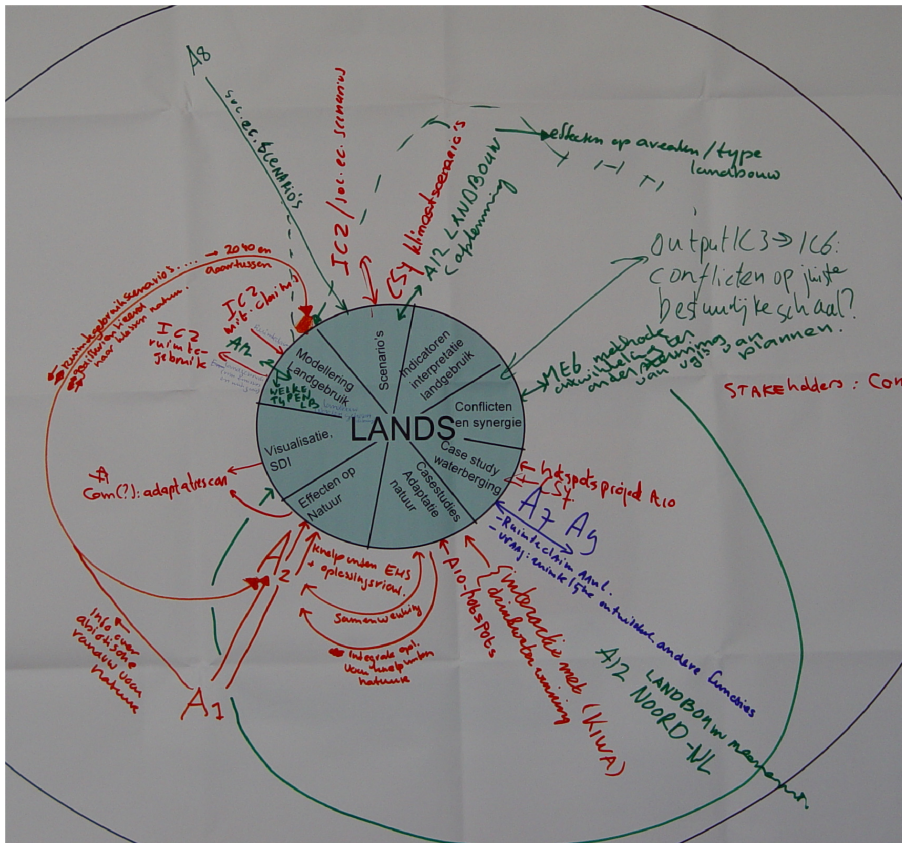 A8
soc. ec. SCENARIO'S
IC2 / soc. ec. scenarios
CS7 klimaatscenario's
A12 LANDBOUW
afstemming
effecten op arealen/type
landbouw
output IC3 → IC6:
conflicten op juiste
bestuurlijke schaal?
ME6 methode
ontwikkeling ter
ondersteuning
van vglis van
plannen.
STAKEholders : Com
ruimtegebruikscenario's .... → 2040 en
daartussen
naar klassen natuur.
IC2
IC2
ruimte-
gebruik
A12
WELKE
TYPEN
LB
Modellering
Landgebruik
Scenario's
Indicatoren
interpretatie
landgebruik
Conflicten
en synergie
LANDS
Case study
waterberging
Casestudies
Adaptatie
natuur
Effecten op
Natuur
Visualisatie,
SDI
Com(?): adaptatiescan
hotspotsproject A10
CS7.
A7 A9
- Ruimteclaim
- vraag: ruimtelijke ontwikkel. andere functies
A2
knelpunten EHS
+ oplossingsricht.
Samenwerking
Integrale opl.
voor knelpunten
natuur
A10-hotspots
interactie met
drinkwaterwinning
(KIWA)
A12 LANDBOUW
NOORD-NL
Info over
abiotische
randvw voor
natuur
A1